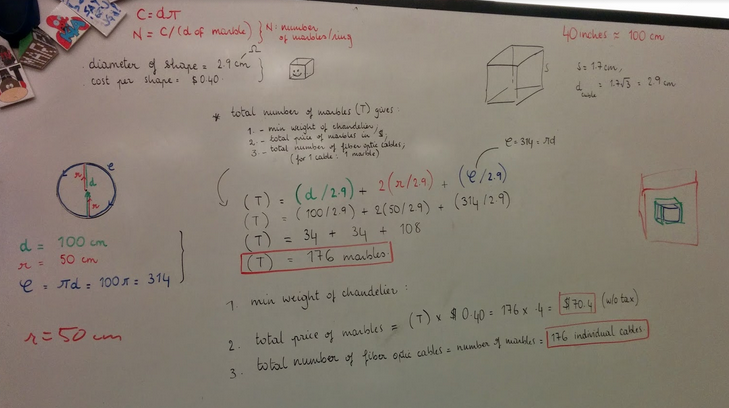 C = dπ
N = C/(d of marble) } N: number of marbles/ring
40 inches ≈ 100 cm
diameter of shape = 2.9 cm
cost per shape = $0.40
s = 1.7 cm,
d = 1.7√3 = 2.9 cm
s
* total number of marbles (T) gives:
1. - min weight of chandelier,
2. - total price of marbles in $,
3. - total number of fiber optic cables,
(for 1 cable: 1 marble)
C = 314 = πd
(T) = (d/2.9) + 2(r/2.9) + (C/2.9)
(T) = (100/2.9) + 2(50/2.9) + (314/2.9)
(T) = 34 + 34 + 108
(T) = 176 marbles
C
r
d
r
d = 100 cm
r = 50 cm
C = πd = 100π = 314
r = 50 cm
1. min weight of chandelier:
2. total price of marbles = (T) × $0.40 = 176 × .4 = $70.4 (w/o tax)
3. total number of fiber optic cables = number of marbles = 176 individual cables